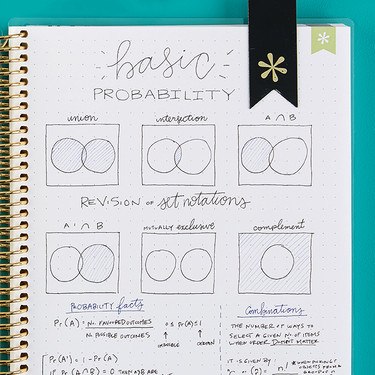 basic
PROBABILITY
union intersection A ∩ B
REVISION OF set notations
A' ∩ B MUTUALLY EXCLUSIVE complement
PROBABILITY facts
Pr(A) = NO. FAVORED OUTCOMES
NO. POSSIBLE OUTCOMES
0 ≤ Pr(A) ≤ 1
Pr(A') = 1 - Pr(A)
if Pr(A∩B) = 0 THEN A&B ARE
Combinations
THE NUMBER OF WAYS TO
SELECT A GIVEN NO. OF ITEMS
WHEN ORDER DOESN'T MATTER.
IT IS GIVEN BY
n!